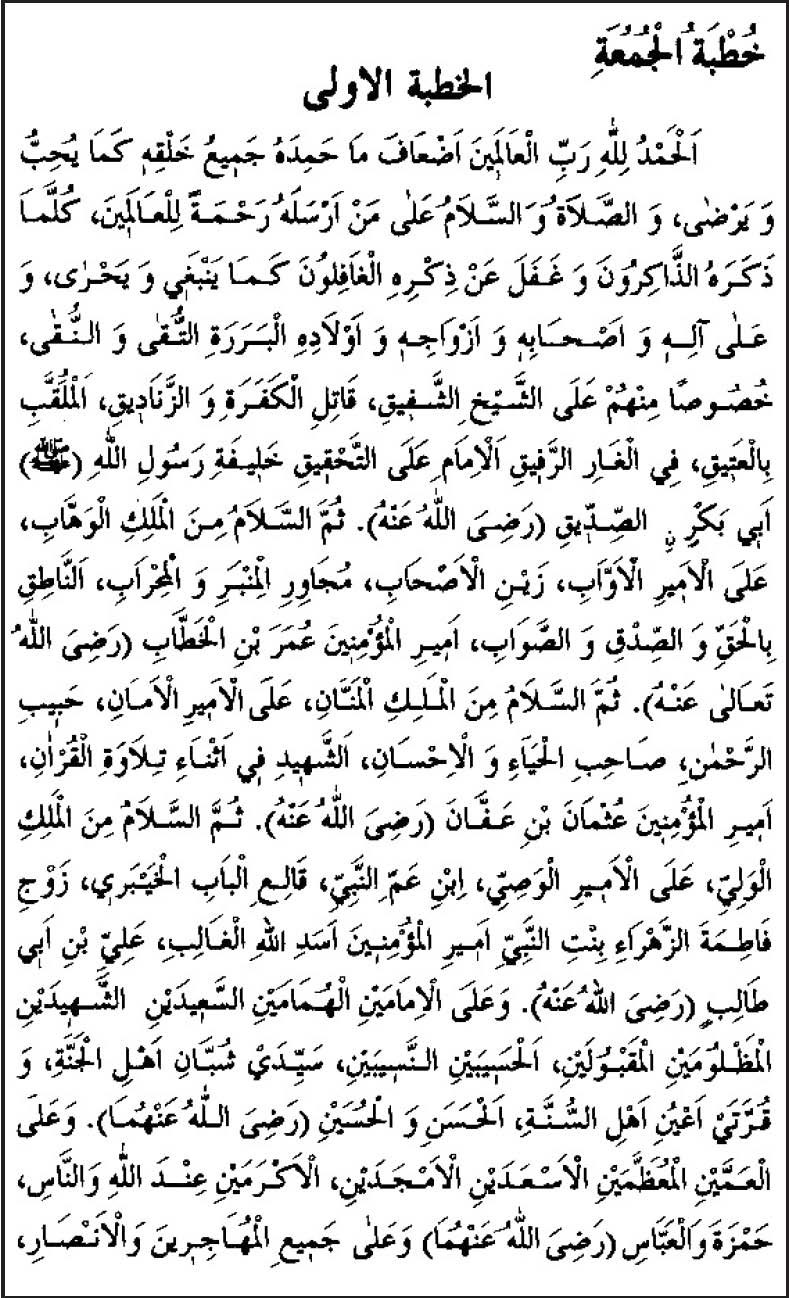 خُطْبَةُ الْجُمُعَةِ
الخطبة الاولى
اَلْحَمْدُ لِلّٰهِ رَبِّ الْعَالَمٖينَ اَضْعَافَ مَا حَمِدَهُ جَمٖيعُ خَلْقِهٖ كَمَا يُحِبُّ
وَ يَرْضٰى، وَ الصَّلَاةُ وَ السَّلَامُ عَلٰى مَنْ اَرْسَلَهُ رَحْمَةً لِلْعَالَمٖينَ، كُلَّمَا
ذَكَرَهُ الذَّاكِرُونَ وَ غَفَلَ عَنْ ذِكْرِهِ الْغَافِلُونَ كَمَا يَنْبَغٖي وَ يَحْرٰى، وَ
عَلٰى آلِهٖ وَ اَصْحَابِهٖ وَ اَزْوَاجِهٖ وَ اَوْلَادِهِ الْبَرَرَةِ التُّقٰى وَ النُّقٰى،
خُصُوصًا مِنْهُمْ عَلَى الشَّيْخِ الشَّفٖيقِ، قَاتِلِ الْكَفَرَةِ وَ الزَّنَادٖيقِ، اَلْمُلَقَّبِ
بِالْعَتٖيقِ، فِي الْغَارِ الرَّفٖيقِ اَلْاِمَامِ عَلَى التَّحْقٖيقِ خَلٖيفَةِ رَسُولِ اللّٰهِ (ﷺ)
اَبٖي بَكْرٍ نِ الصِّدّٖيقِ (رَضِىَ اللّٰهُ عَنْهُ). ثُمَّ السَّلَامُ مِنَ الْمَلِكِ الْوَهَّابِ،
عَلَى الْاَمٖيرِ الْاَوَّابِ، زَيْنِ الْاَصْحَابِ، مُجَاوِرِ الْمِنْبَرِ وَ الْمِحْرَابِ، اَلنَّاطِقِ
بِالْحَقِّ وَ الصِّدْقِ وَ الصَّوَابِ، اَمٖيرِ الْمُؤْمِنٖينَ عُمَرَ بْنِ الْخَطَّابِ (رَضِىَ اللّٰهُ
تَعَالٰى عَنْهُ). ثُمَّ السَّلَامُ مِنَ الْمَلِكِ الْمَنَّانِ، عَلَى الْاَمٖيرِ الْاَمَانِ، حَبٖيبِ
الرَّحْمٰنِ، صَاحِبِ الْحَيَاءِ وَ الْاِحْسَانِ، اَلشَّهٖيدِ فٖي اَثْنَاءِ تِلَاوَةِ الْقُرْاٰنِ،
اَمٖيرِ الْمُؤْمِنٖينَ عُثْمَانَ بْنِ عَفَّانَ (رَضِىَ اللّٰهُ عَنْهُ). ثُمَّ السَّلَامُ مِنَ الْمَلِكِ
الْوَلِيِّ، عَلَى الْاَمٖيرِ الْوَصِيِّ، اِبْنِ عَمِّ النَّبِيِّ، قَالِعِ الْبَابِ الْخَيْبَرِي، زَوْجِ
فَاطِمَةَ الزَّهْرَاءِ بِنْتِ النَّبِيِّ اَمٖيرِ الْمُؤْمِنٖينَ اَسَدِ اللّٰهِ الْغَالِبِ، عَلِيِّ بْنِ اَبٖي
طَالِبٍ (رَضِىَ اللّٰهُ عَنْهُ). وَعَلَى الْاِمَامَيْنِ الْهُمَامَيْنِ السَّعٖيدَيْنِ الشَّهٖيدَيْنِ
الْمَظْلُومَيْنِ الْمَقْبُولَيْنِ، اَلْحَسٖيبَيْنِ النَّسٖيبَيْنِ، سَيِّدَيْ شُبَّانِ اَهْلِ الْجَنَّةِ، وَ
قُرَّتَيْ اَعْيُنِ اَهْلِ السُّنَّةِ، اَلْحَسَنِ وَ الْحُسَيْنِ (رَضِىَ اللّٰهُ عَنْهُمَا). وَعَلَى
الْعَمَّيْنِ الْمُعَظَّمَيْنِ الْاَسْعَدَيْنِ الْاَمْجَدَيْنِ، الْاَكْرَمَيْنِ عِنْدَ اللّٰهِ وَالنَّاسِ،
حَمْزَةَ وَالْعَبَّاسِ (رَضِىَ اللّٰهُ عَنْهُمَا) وَعَلٰى جَمٖيعِ الْمُهَاجِرٖينَ وَالْاَنْصَارِ،